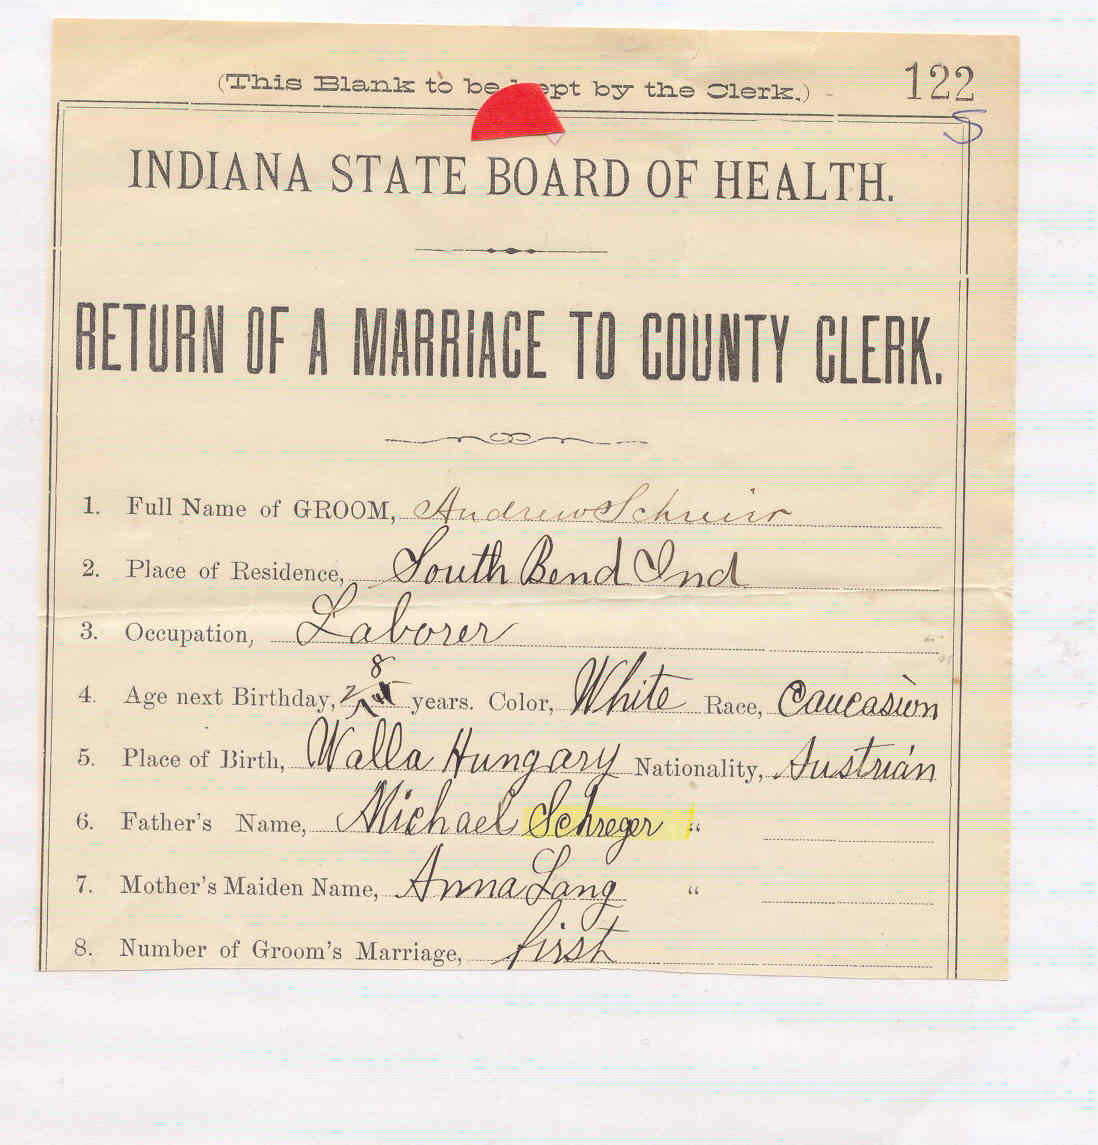 (This Blank to be kept by the Clerk.) 122
5
INDIANA STATE BOARD OF HEALTH.
RETURN OF A MARRIAGE TO COUNTY CLERK.
1. Full Name of GROOM, Andrew Schreir
2. Place of Residence, South Bend Ind
3. Occupation, Laborer
4. Age next Birthday, 28 years. Color, White Race, Caucasion
5. Place of Birth, Walla Hungary Nationality, Austrian
6. Father's Name, Michael Schreger "
7. Mother's Maiden Name, Anna Lang "
8. Number of Groom's Marriage, first